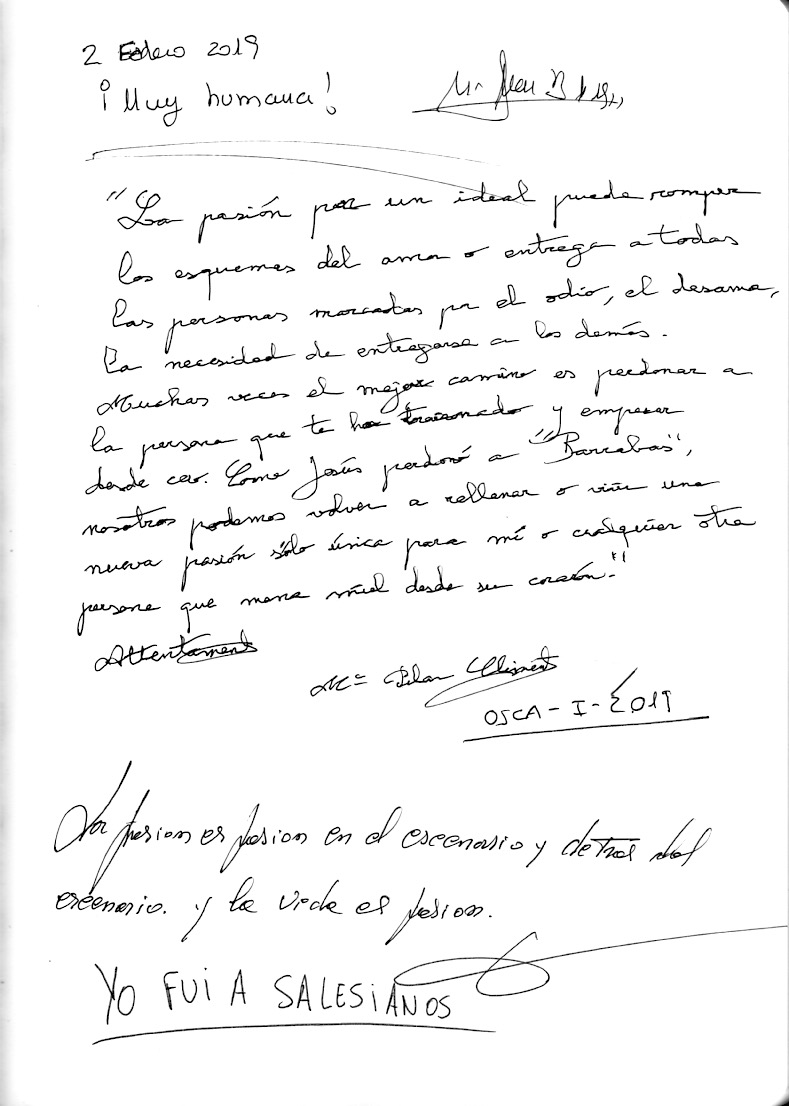 2 Enero 2019
¡Muy humana!
"La pasión por un ideal puede romper
los esquemas del amor o entrega a todas
las personas marcadas por el odio, el desamor,
la necesidad de entregarse a los demás.
Muchas veces el mejor camino es perdonar a
la persona que te ha traicionado y empezar
desde cero. Como Jesús perdonó a "Barrabás",
nosotros podemos volver a rellenar o vivir una
nueva pasión sólo única para mí o cualquier otra
persona que mana miel desde su corazón."
Attentament
Mª Pilar Climent
OSCA - I - 2019
La pasion es pasion en el escenario y detrás del
escenario. y la vida es pasion.
YO FUI A SALESIANOS